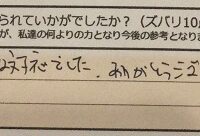 られていかがでしたか？（ズバリ10
が、私達の何よりの力となり今後の参考となりま
幸せでした。ありがとうござ